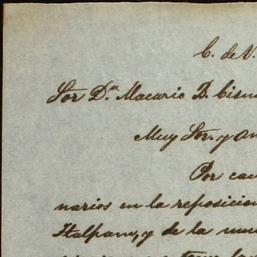 C. de V.
Sor Dn. Macario D. Cisn
Muy Sor. y am
Por cau
narios en la reposicion
Ytalpam, y de la mu